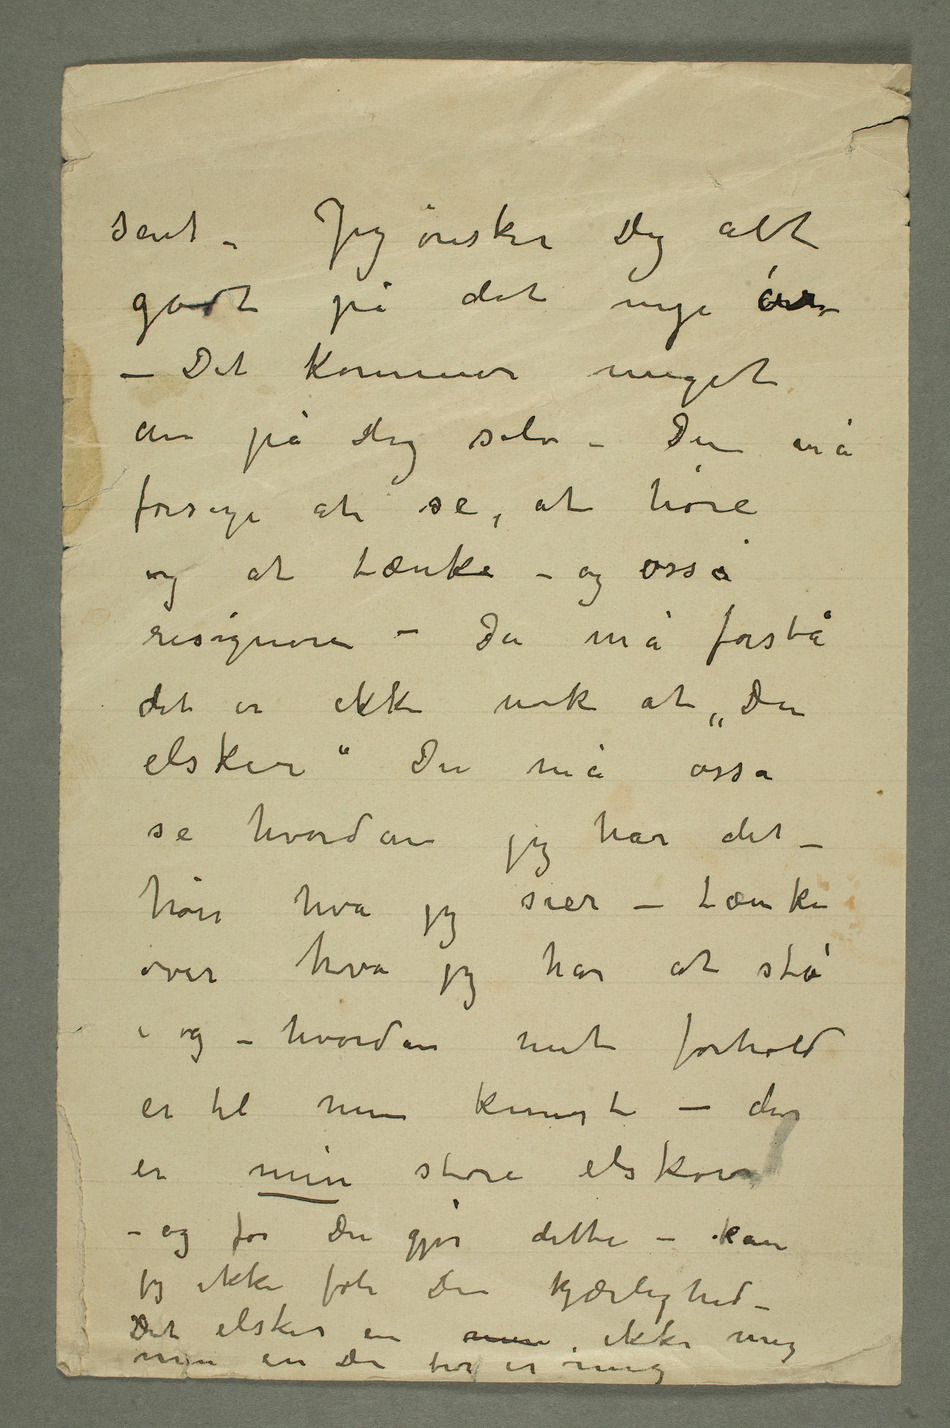 sent – Jeg ønsker Dig alt
godt på det nye år
– Det kommer meget
an på dig selv – Du må
forsøge at se, at høre
og at tænke – og osså
resignere – Du må forstå
det er ikke nok at „Du
elsker“ Du må ossa
se hvordan jeg har det –
hør hva jeg sier – tænke
over hva jeg har at stå
i og – hvordan mit forhold
er til min kunst – den
er min store elskov
– og før Du gjør dette – kan
jeg ikke føle Din kjærlighed –
Du elsker en men ikke mig
men en Du tror er mig